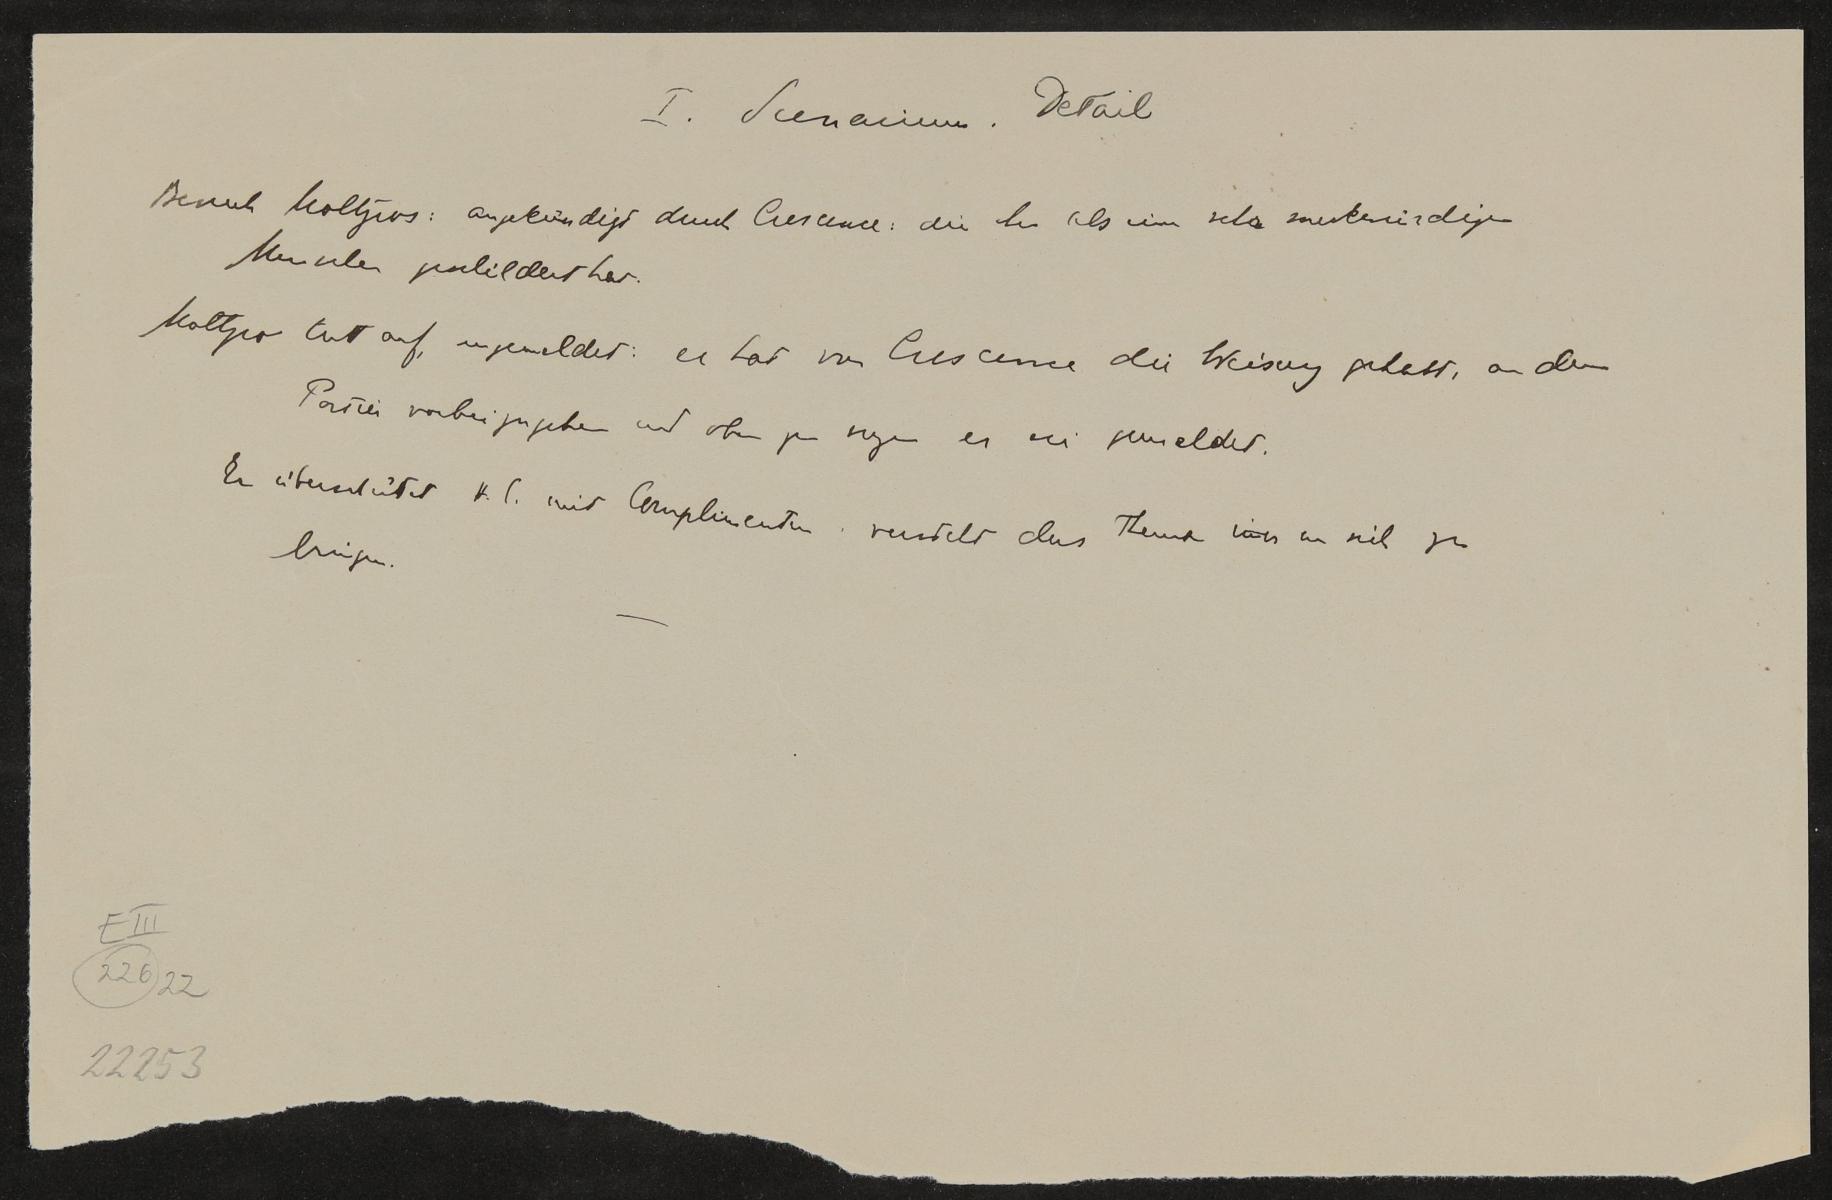 I. Scenarium. Detail
Besuch Moltzios: angekündigt durch Crescence: die ihn als einen sehr merkwürdigen
Menschen geschildert hat.
tritt auf, ungemeldet: er hat von Crescence die Weisung gehabt, an dem
Portier vorbeizugehen und oben zu sagen er sei gemeldet.
Er überschüttet H. C. mit Complimenten. versteht das Thema immer an sich zu
bringen.
E III
226 22
22253